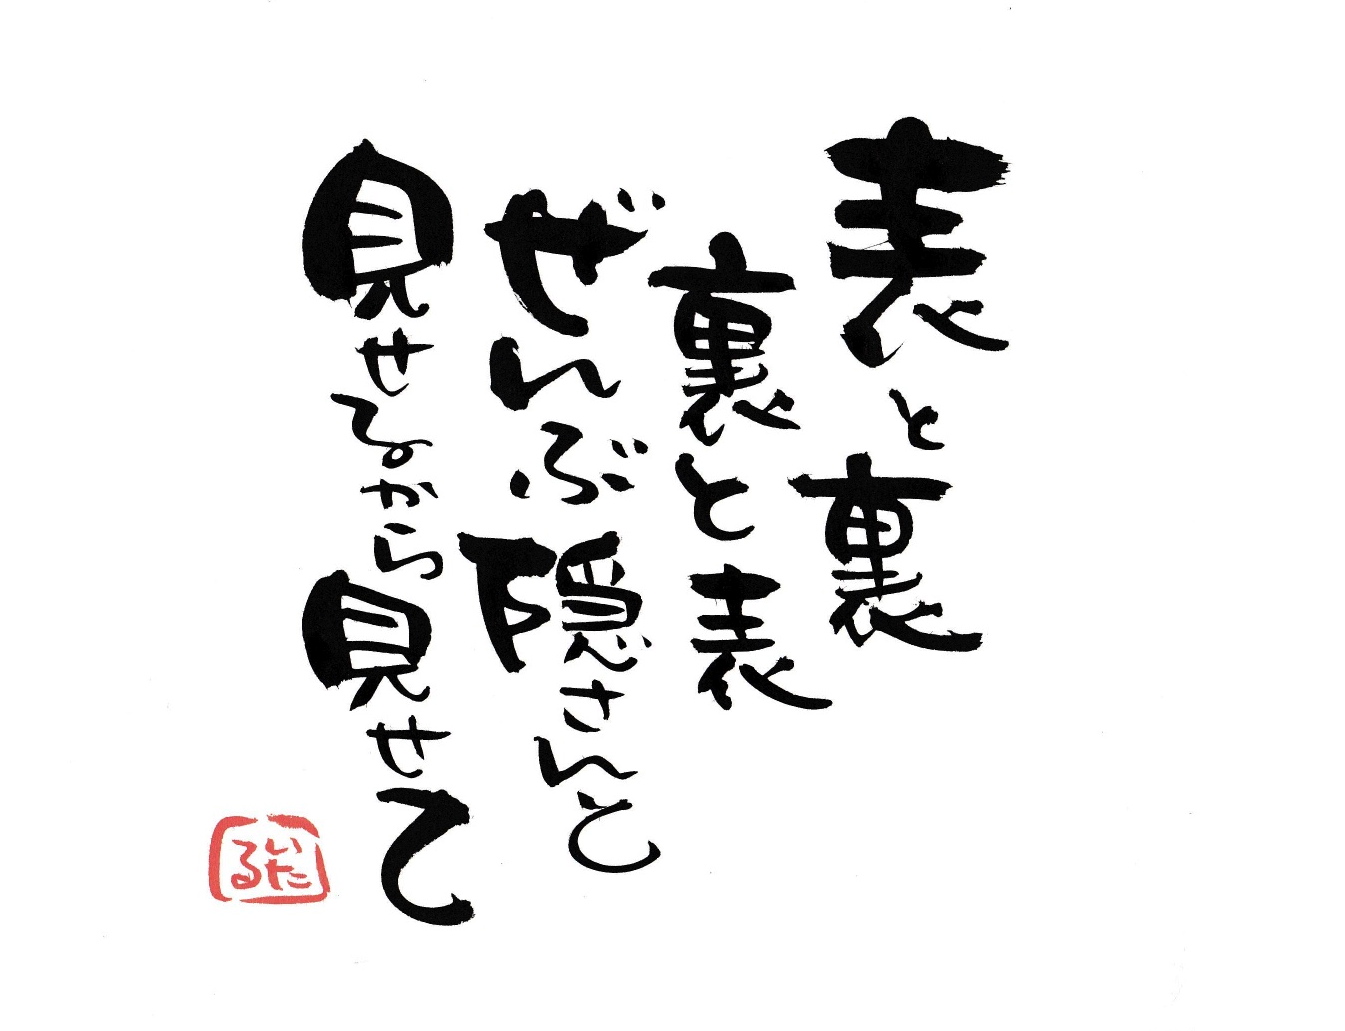 表と裏
裏と表
ぜんぶ隠さんと
見せるから見せて
いた
る